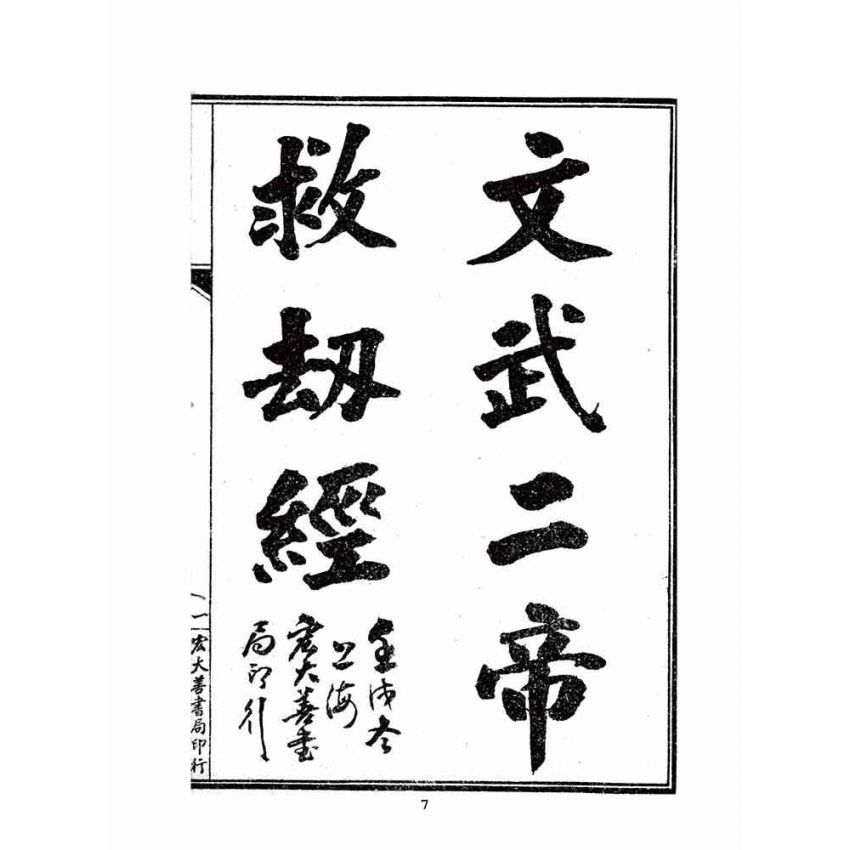 文武二帝
救劫經
壬戌冬
上海
宏大善書
局印行
一
宏大善書局印行
7